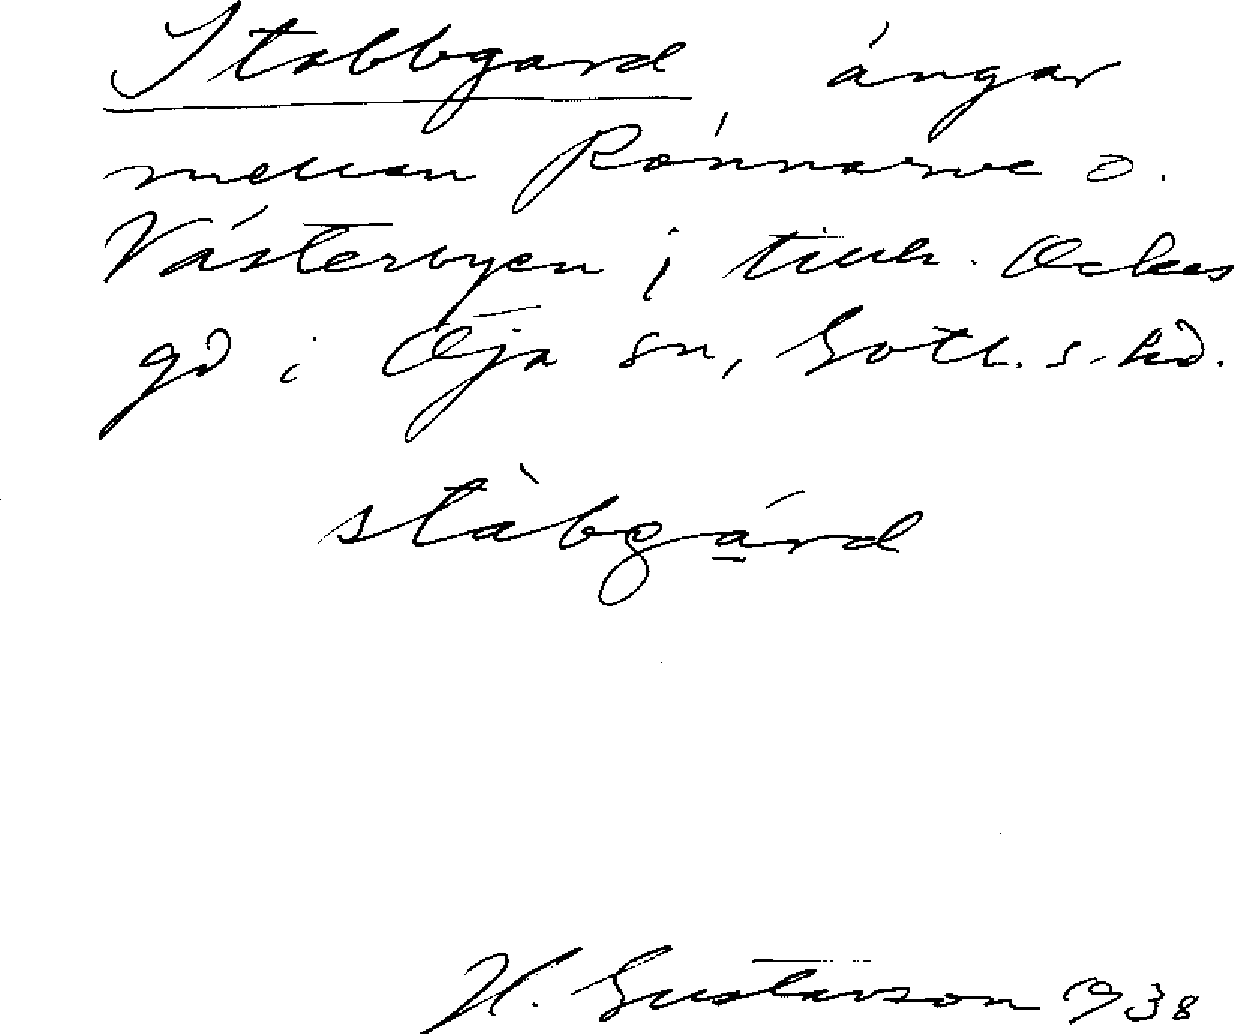 Stabbgard ängar
mellan Rönnarve o.
Västerbyen i tillh. Ockes
gd i Öja sn, Gotl. s. hd.
stàbgárd
H. Gustavson 1938